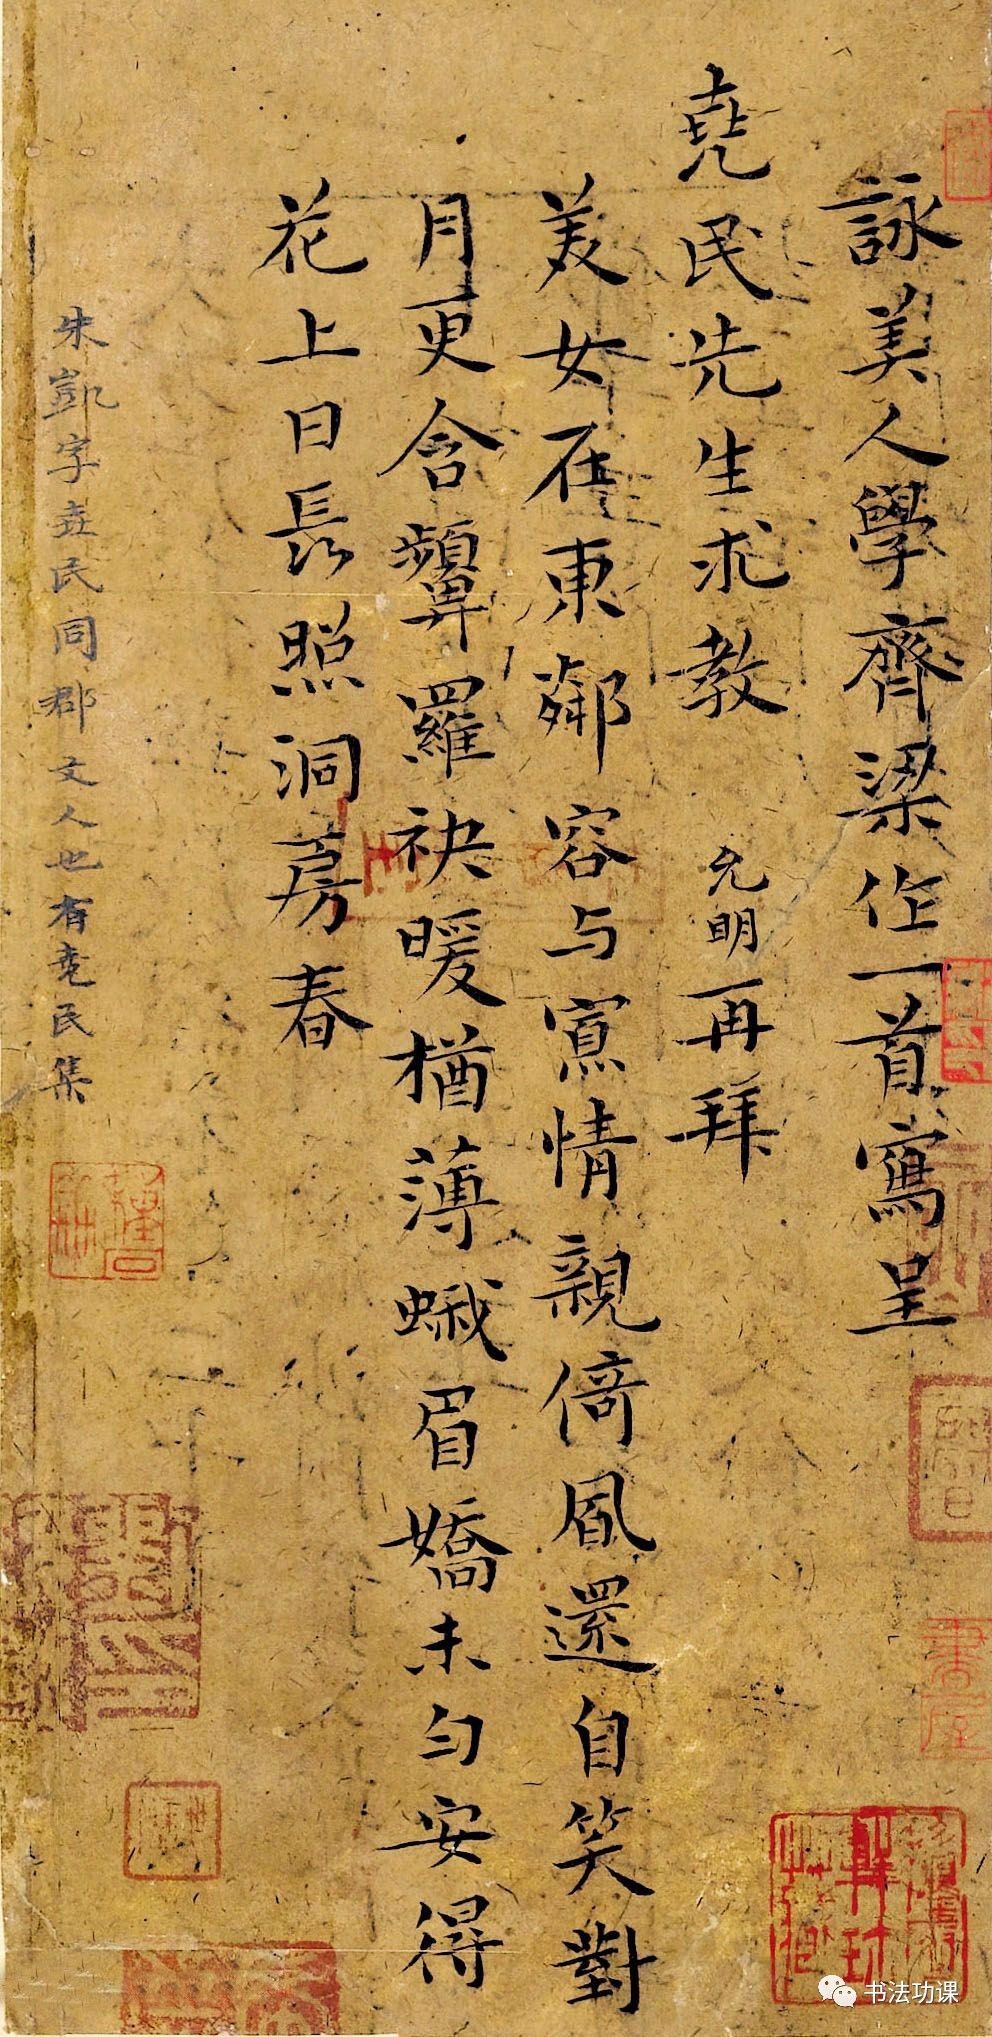 詠美人學齊梁作一首寫呈
堯民先生求教 允明再拜
美女在東鄰容与寘情親倚風還自笑對
月更含顰羅袂暖猶薄蛾眉嬌未勻安得
花上日長照洞房春
朱凱字堯民同郡文人也有堯民集
书法功课